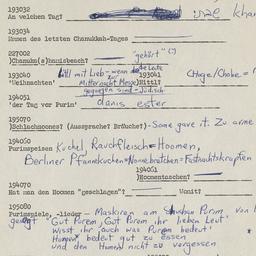 193032
An welchem Tag? une khan
193034
Namen des letzten Chanukkah-Tages
227002
)Chanuk(a)hnuisbesch? "gehört" (?)
193040 Will mit Lieb - wenn die Leute 193041
'Weihnachten' Mitternacht Messe )Nittl?
gegangen sind - Jüdsch
194051
'der Tag vor Purim' danis ester
195070
)Schlachmones? (Aussprache? Bräuche?) - Some gave it. Zu arme
195050
Purimspeisen Kuchel, Rauchfleisch = Hoomen,
Berliner Pfannekuchen = Nonnebrätchen - Fasthachtskrapfen
194061
)Hoomentaschen?
194070
Hat man den Hoomen "geschlagen"? Womit?
195080
Purimspiele, -lieder - Maskiren am Shushan Purim von
gesagt "Gut Purem, Gut Purem ihr lieben Leut'
Wisst ihr auch was Purem bedeut?
Humen bedeut gut zu essen
und den Humen nicht zu vergessen